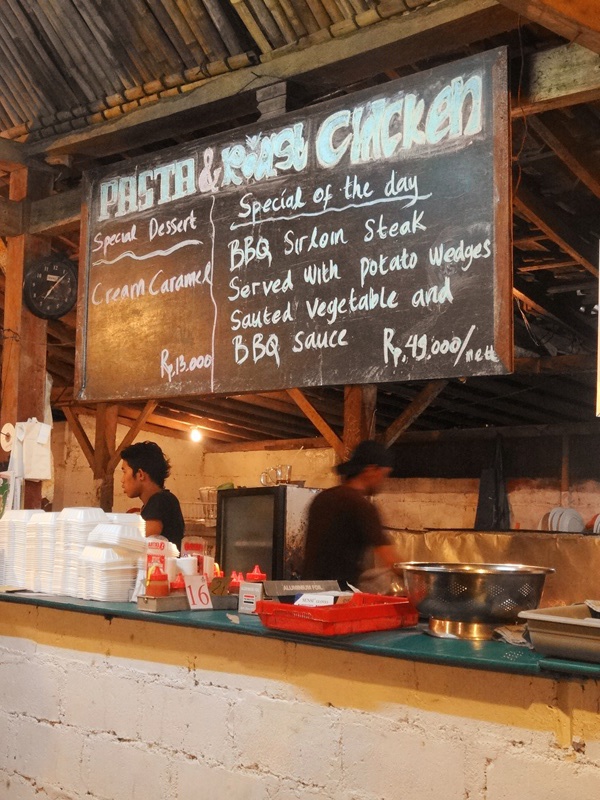 PASTA & Roast Chicken
Special Dessert
Cream Caramel
Rp.13.000
Special of the day
BBQ Sirloin Steak
Served With Potato Wedges
Sauted Vegetable and
BBQ Sauce Rp.49.000/nett
16
ALUMINIUM FOIL